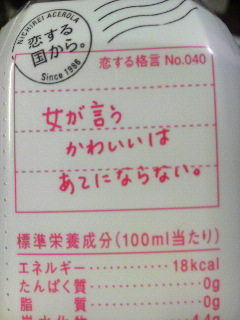 NICHIREI ACEROLA
恋する
国から。
Since 1996
恋する格言 No.040
女が言う
かわいいは
あてにならない。
標準栄養成分(100ml当たり)
エネルギー‥‥‥‥‥18kcal
たんぱく質‥‥‥‥‥‥0g
脂　　質‥‥‥‥‥‥‥0g